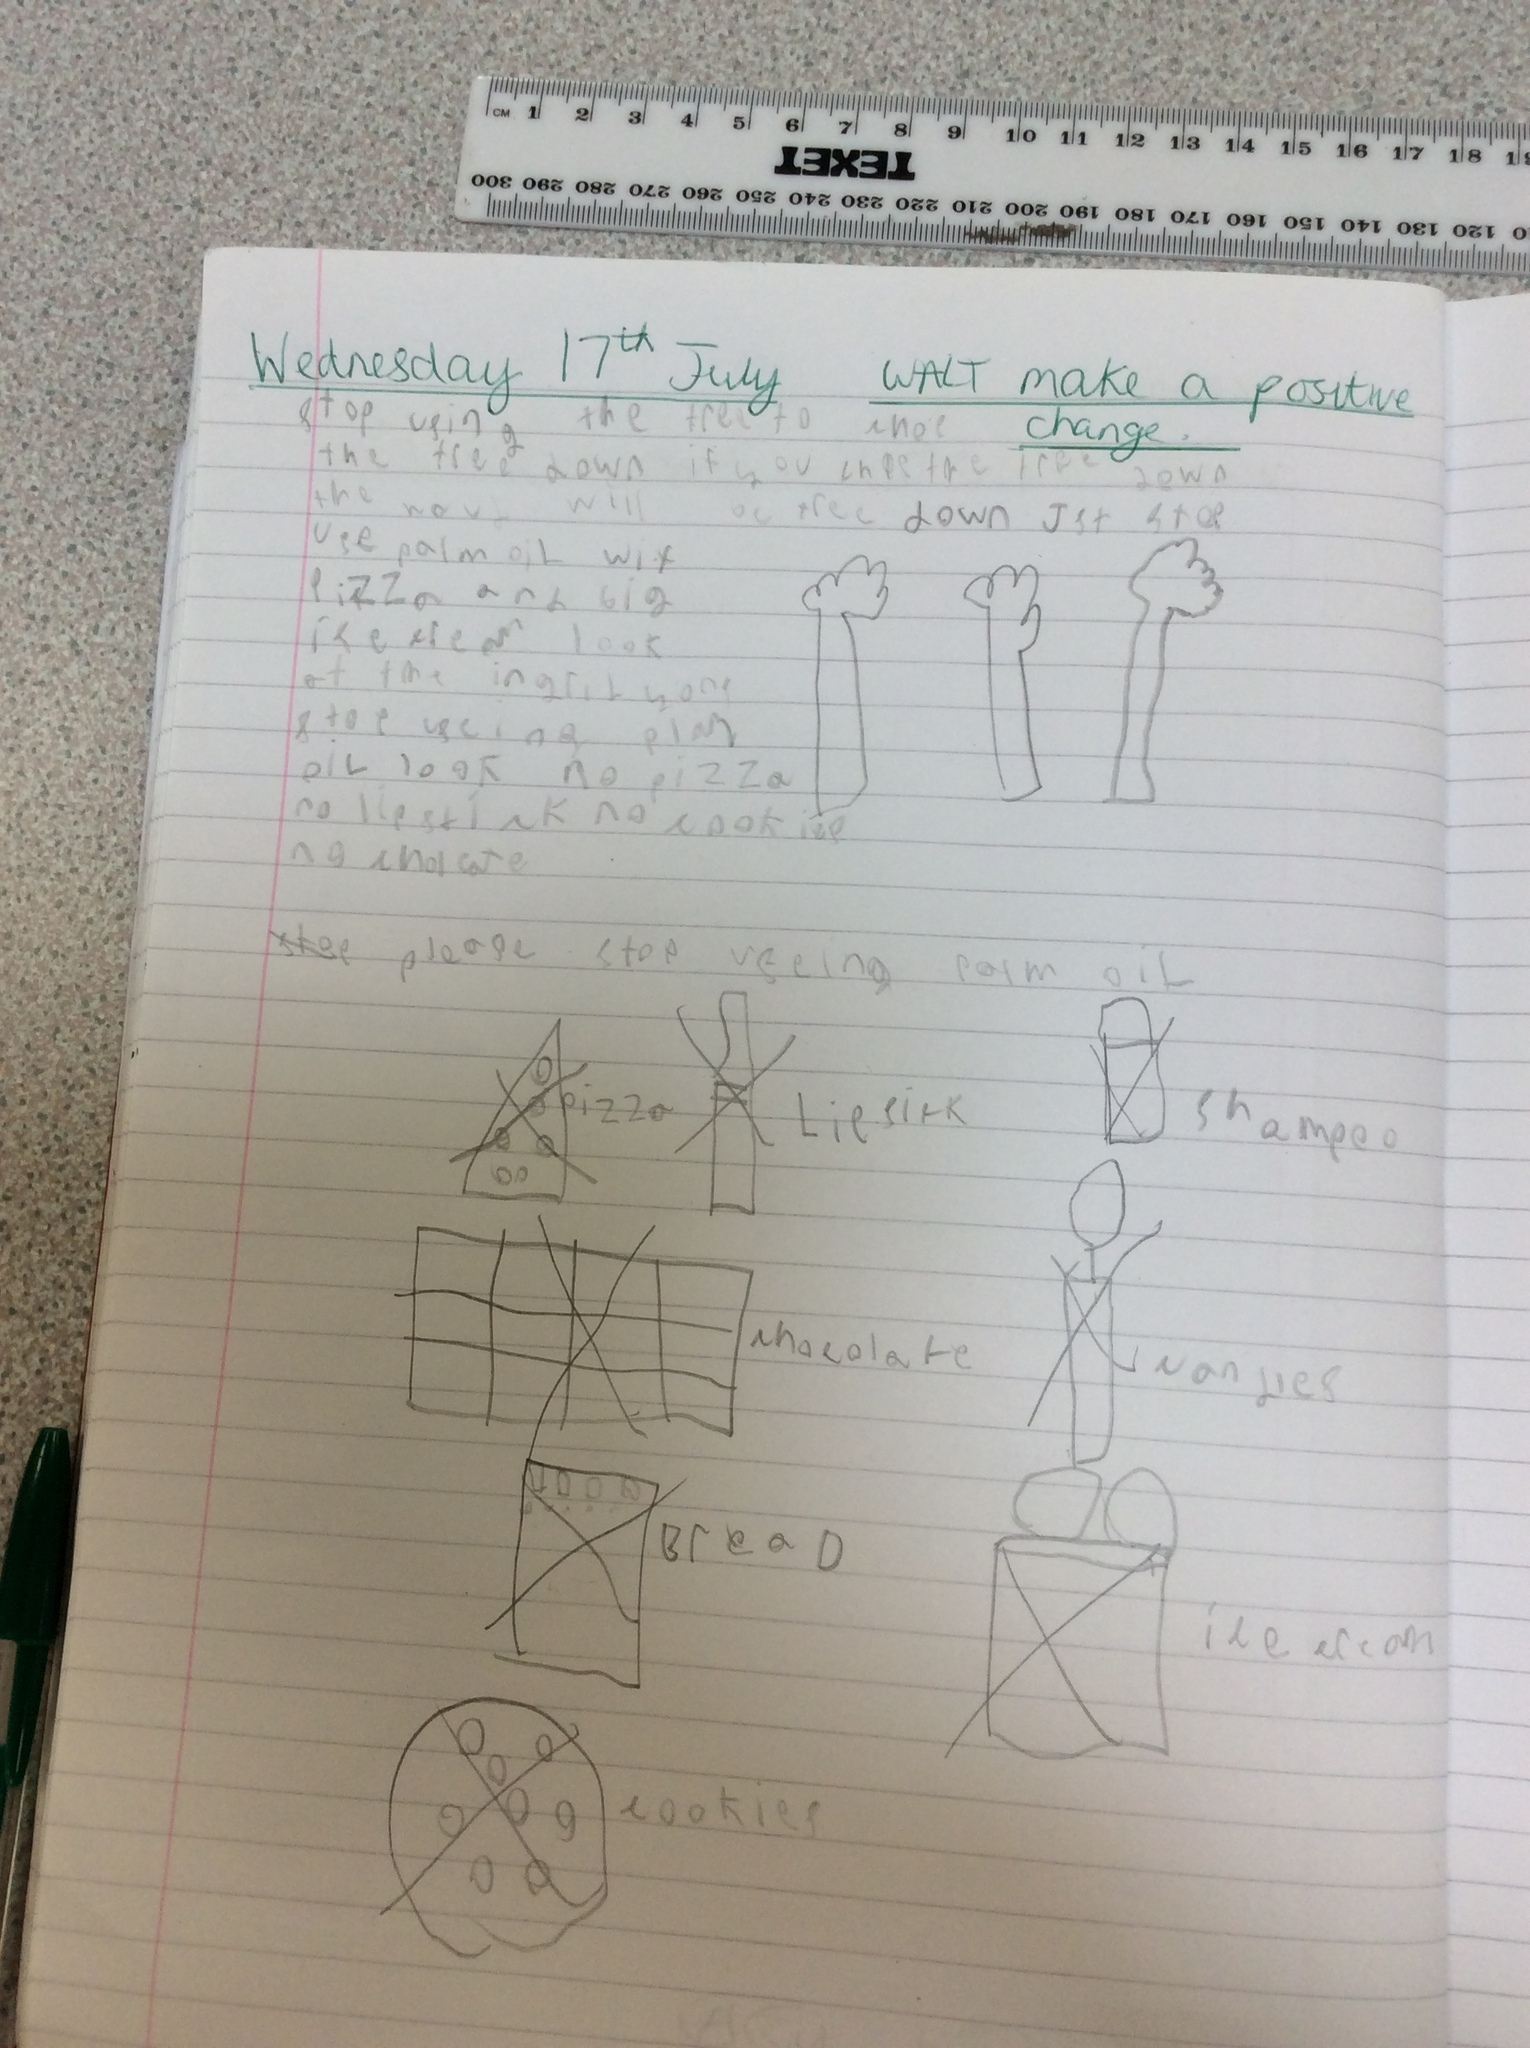 CM 1 2 3 4 5 6 7 8 9 10 11 12 13 14 15 16 17 18
TEXET
300 290 280 270 260 250 240 230 220 210 200 190 180 170 160 150 140 130 120
Wednesday 17th July WALT make a positive
change.
stop using the tree to
the tree down if you the tree down
the will be tree down Jst stop
use palm oil wix
pizza and big
ice cream look
at the
stop useing plam
oil look no pizza
no lipstick no
no
please stop useing palm oil
pizza Lipsick shampoo
chocolate
BreaD
ice cream
cookies